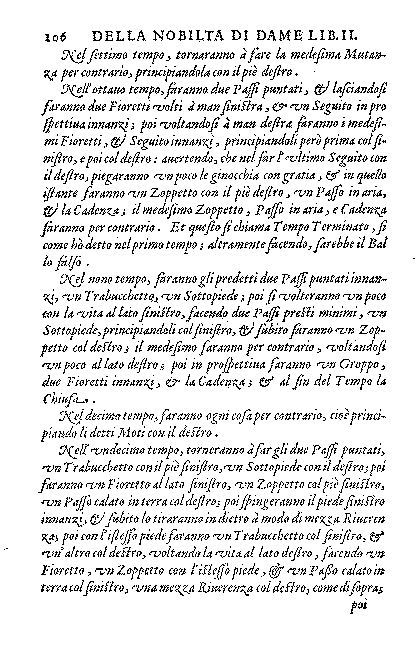 106 DELLA NOBILTA DI DAME LIB. II.
Nel settimo tempo, tornaranno à fare la medesima Mutan-
za per contrario, principiandola con il piè destro.
Nell'ottauo tempo, faranno due Passi puntati, & lasciandosi
faranno due Fioretti volti à man sinistra, & vn Seguito in pro
spettiua innanzi; poi voltandosi à man destra faranno i medesi-
mi Fioretti, & Seguito innanzi, principiandoli però prima col si-
nistro, e poi col destro: auertendo, che nel far l'vltimo Seguito con
il destro, piegaranno vn poco le ginocchia con gratia, & in quello
istante faranno vn Zoppetto con il piè destro, vn Passo in aria,
& la Cadenza; il medesimo Zoppetto, Passo in aria, e Cadenza
faranno per contrario. Et questo si chiama Tempo Terminato, si
come hò detto nel primo tempo; altramente facendo, sarebbe il Bal
lo falso.
Nel nono tempo, faranno gli predetti due Passi puntati innan-
zi, vn Trabucchetto, vn Sottopiede; poi si volteranno vn poco
con la vita al lato sinistro, facendo due Passi presti minimi, vn
Sottopiede, principiandoli col sinistro, & subito faranno vn Zop-
petto col destro; il medesimo faranno per contrario, voltandosi
vn poco al lato destro; poi in prospettiua faranno vn Groppo,
due Fioretti innanzi, & la Cadenza; & al fin del Tempo la
Chiusa.
Nel decimo tempo, faranno ogni cosa per contrario, cioè princi-
piando li detti Moti con il destro.
Nell'vndecimo tempo, torneranno à far gli due Passi puntati,
vn Trabucchetto con il piè sinistro, vn Sottopiede con il destro; poi
faranno vn Fioretto al lato sinistro, vn Zoppetto col piè sinistro,
vn Passo calato in terra col destro; poi spingeranno il piede sinistro
innanzi, & subito lo tiraranno in dietro à modo di mezza Riueren
za, poi con l'istesso piede faranno vn Trabucchetto col sinistro, &
vn'altro col destro, voltando la vita al lato destro, facendo vn
Fioretto, vn Zoppetto con l'istesso piede, & vn Passo calato in
terra col sinistro, vna mezza Riuerenza col destro, come di sopra;
poi